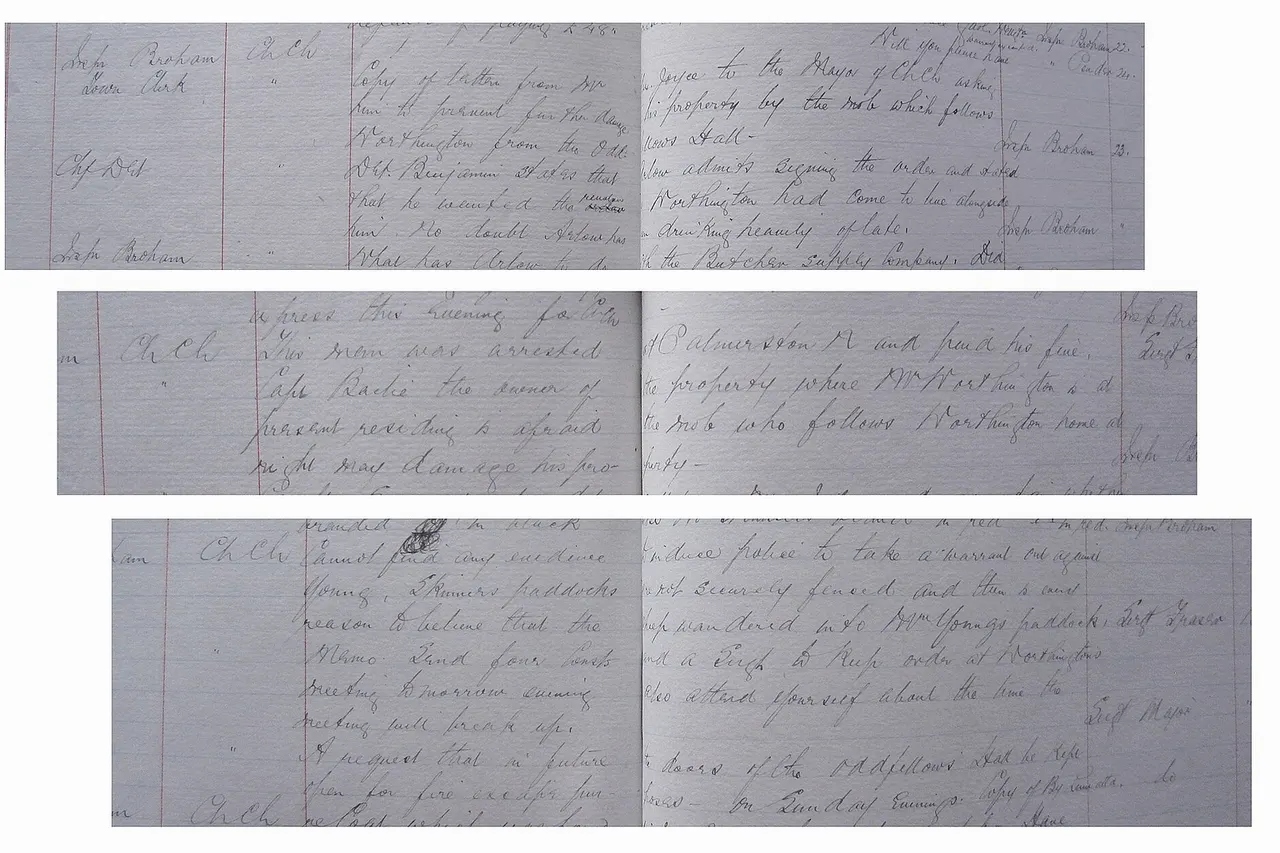 Insp Broham Ch Ch
Town Clerk
Copy of letter from Mr Joyce to the Mayor of Ch Ch asking
him to prevent further damage his property by the mob which follows
Worthington from the Odd- lows Hall -
Will you please have
Insp Broham 22.
Chf Det " Det. Benjamin states that low admits signing the order and stated
that he wanted the Worthington had come to live alongside
him. No doubt Arlow has drinking heavily of late.
Insp Broham 23.
Insp Broham " What has Arlow to do the Butcher Supply Company. Did
Insp Broham "
express this evening for Ch Ch
Ch Ch This man was arrested at Palmerston N and paid his fine.
" Capt Bache the owner of the property where Mr Worthington is at
present residing is afraid the mob who follows Worthington home at
night may damage his pro- perty -
Insp Bro
Sergt
Insp B
branded in black in red Insp Broham
am Ch Ch Cannot find any evidence induce police to take a warrant out against
Young, Skinners paddocks not securely fenced and there is every
reason to believe that the wandered into Mr Youngs paddock. Sergt Fraser
" Memo Send four Consts and a Sergt to keep order at Worthingtons
meeting tomorrow evening also attend yourself about the time the
meeting will break up.
Sergt Major "
" A request that in future doors of the Oddfellows Hall be kept
open for fire escape pur- poses - on Sunday Evenings. Copy of By
Ch Ch
Have